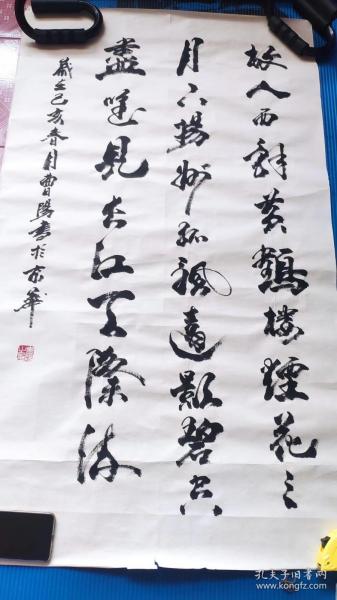 故人西辞黄鹤楼烟花三
月下扬州孤帆遠影碧空
盡唯見长江天際流
歲在己亥春月曹陽書於京華
孔夫子旧书网
www.kongfz.com